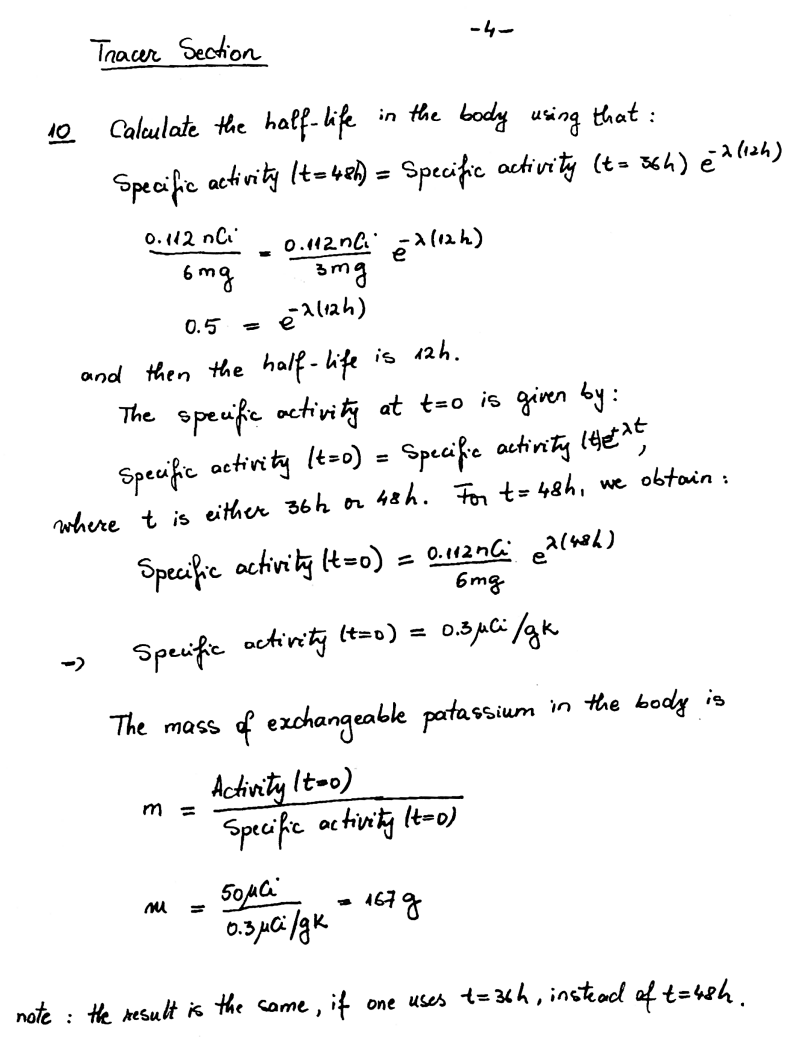 -4-
Tracer Section
10 Calculate the half-life in the body using that :
Specific activity (t=48h) = Specific activity (t= 36h) e^-λ(12h)
0.112 nCi / 6 mg = 0.112 nCi / 3 mg e^-λ(12h)
0.5 = e^-λ(12h)
and then the half-life is 12h.
The specific activity at t=0 is given by :
Specific activity (t=0) = Specific activity (t)e^+λt,
where t is either 36h or 48h. For t= 48h, we obtain :
Specific activity (t=0) = 0.112 nCi / 6 mg e^λ(48h)
→ Specific activity (t=0) = 0.3 μCi /gK
The mass of exchangeable patassium in the body is
m = Activity (t=0) / Specific activity (t=0)
m = 50 μCi / 0.3 μCi /gK = 167 g
note : the result is the same, if one uses t=36h, instead of t=48h.